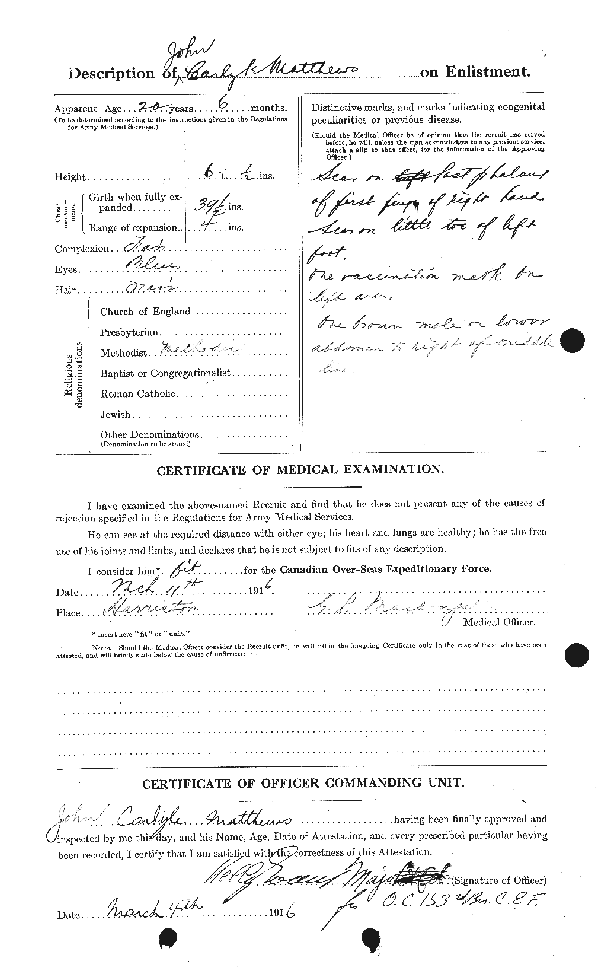 John
Description of Carlyle Matthews on Enlistment.
Apparent Age 20 years 6 months.
(To be determined according to the instructions given in the Regulations for Army Medical Services.)
Height 6 ½ ins.
Chest measurement
Girth when fully expanded 39½ ins.
Range of expansion 4 ins.
Complexion Dark
Eyes Blue
Hair
Religious denominations
Church of England
Presbyterian
Methodist Methodist
Baptist or Congregationalist
Roman Catholic
Jewish
Other Denominations
(Denomination to be stated.)
Distinctive marks, and marks indicating congenital peculiarities or previous disease.
(Should the Medical Officer be of opinion that the recruit has served before, he will, unless the man acknowledges to any previous service, attach a slip to that effect, for the information of the Approving Officer.)
Scar on left last phalanx
of first finger of right hand
Scar on little toe of left
foot.
One vaccination mark on
left arm
One brown mole on lower
abdomen to right of middle
line
CERTIFICATE OF MEDICAL EXAMINATION.
I have examined the above-named Recruit and find that he does not present any of the causes of
rejection specified in the Regulations for Army Medical Services.
He can see at the required distance with either eye; his heart and lungs are healthy; he has the free
use of his joints and limbs, and declares that he is not subject to fits of any description.
I consider him* fit for the Canadian Over-Seas Expeditionary Force.
Date Mch 4th 1916
Place Harriston
Medical Officer.
*Insert here "fit" or "unfit."
Note.—Should the Medical Officer consider the Recruit unfit, he will fill in the foregoing Certificate only in the case of those who have been
attested, and will briefly state below the cause of unfitness:—
CERTIFICATE OF OFFICER COMMANDING UNIT.
John Carlyle Matthews having been finally approved and
inspected by me this day, and his Name, Age, Date of Attestation, and every prescribed particular having
been recorded, I certify that I am satisfied with the correctness of this Attestation.
Major (Signature of Officer)
for O.C. 153rd Bn. C.E.F.
Date March 4th 1916